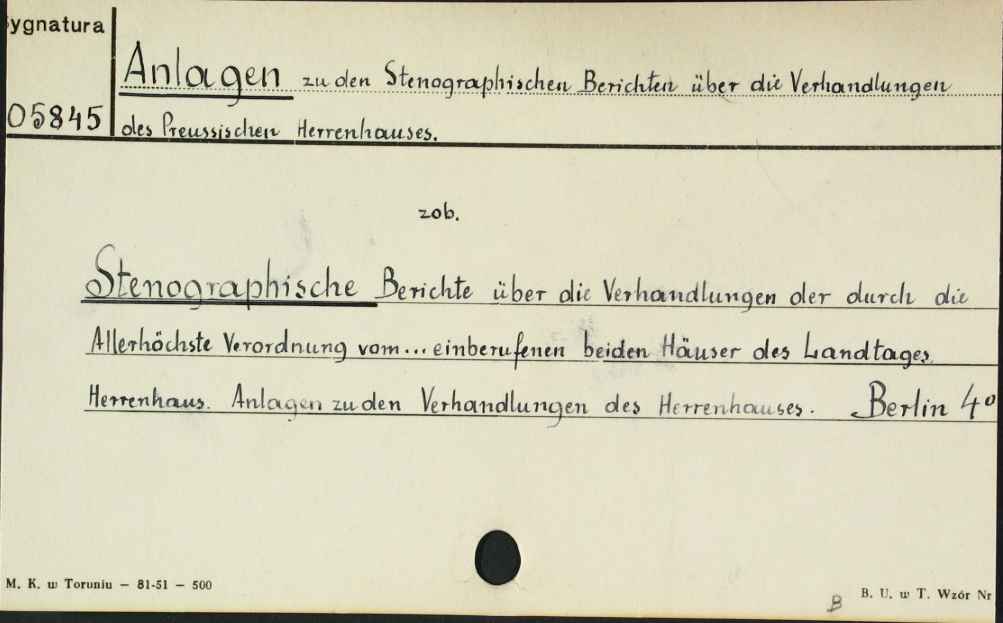 ygnatura
Anlagen zu den Stenographischen Berichten über die Verhandlungen
05845
des Preussischen Herrenhauses.
zob.
Stenographische Berichte über die Verhandlungen der durch die
Allerhöchste Verordnung vom... einberufenen beiden Häuser des Landtages.
Herrenhaus. Anlagen zu den Verhandlungen des Herrenhauses. Berlin 4º
M. K. w Toruniu — 81-51 — 500
B
B. U. w T. Wzór Nr